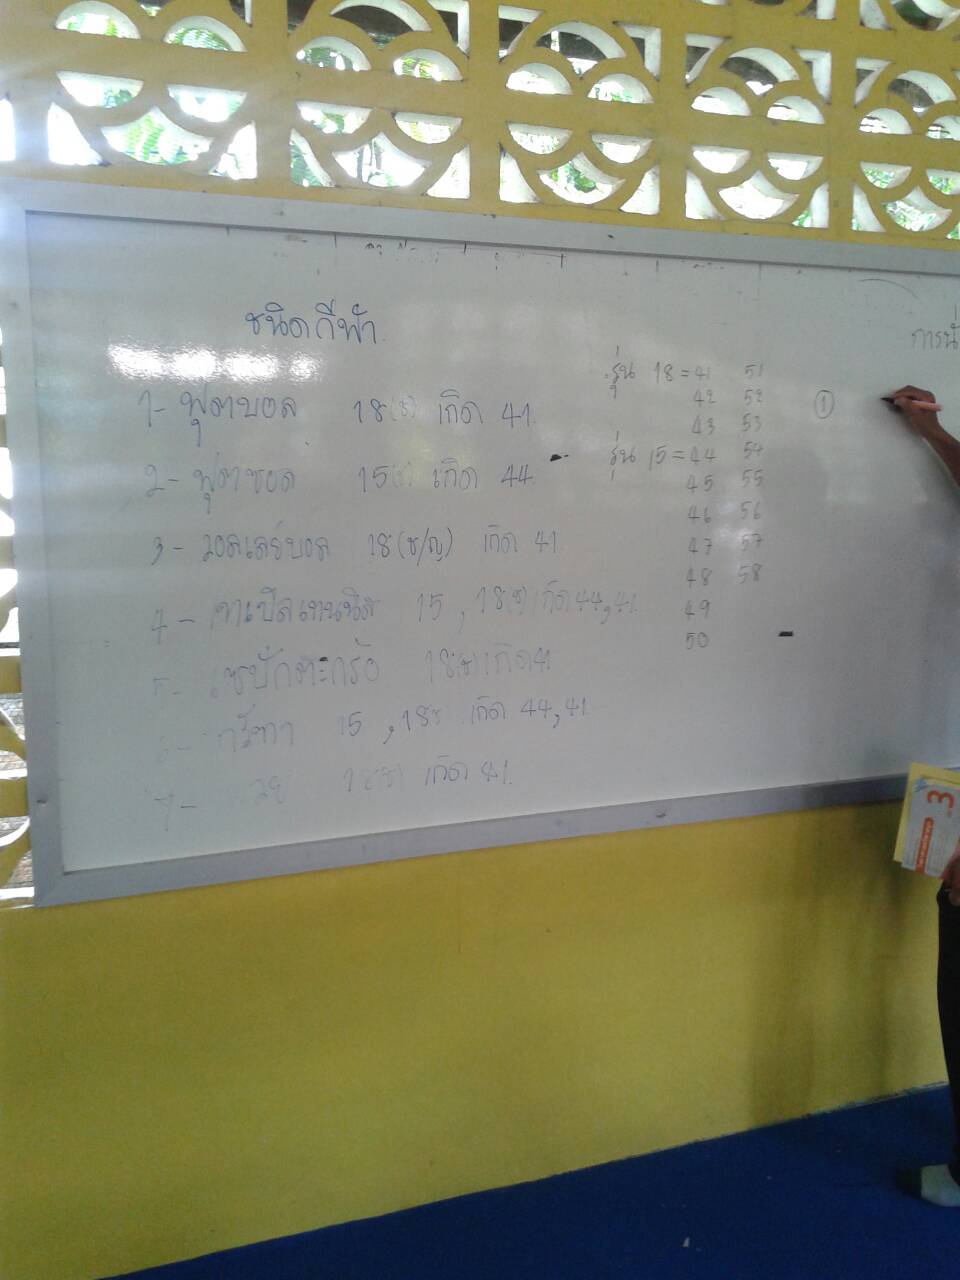 ชนิดกีฬา
1- ฟุตบอล 18(ช) เกิด 41
2- ฟุตซอล 15(ช) เกิด 44
3- วอลเลย์บอล 18(ช/ญ) เกิด 41
4- เทเบิลเทนนิส 15, 18(ช) เกิด 44, 41
5- เซปักตะกร้อ 18(ช) เกิด 41
กรีฑา 15, 18ช เกิด 44, 41
7- 18(ช) เกิด 41
รุ่น 18 = 41 51
42 52
43 53
รุ่น 15 = 44 54
45 55
46 56
47 57
48 58
49
50
①
3